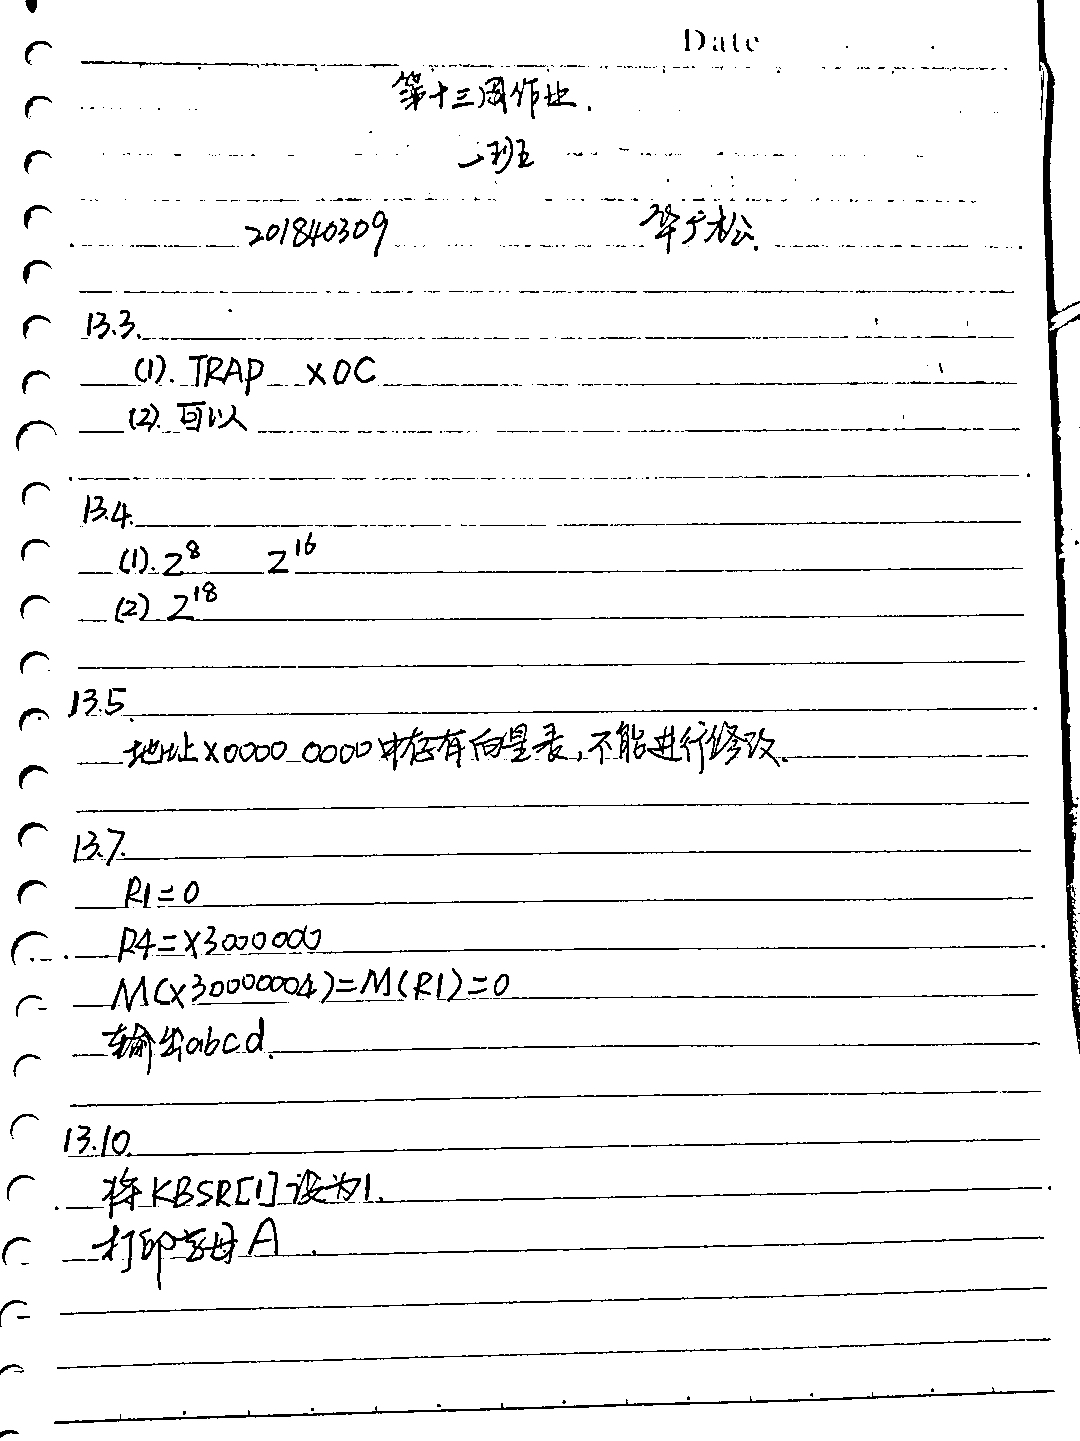 Date
第十三周作业.
一班
201840309 华于松.
13.3.
(1). TRAP x0C
(2). 可以
13.4.
(1). 2^8 2^16
(2) 2^18
13.5.
地址x0000 0000中存有向量表,不能进行修改.
13.7.
R1=0
R4=x3000000
M(x30000004)=M(R1)=0
输出abcd.
13.10.
将KBSR[1]设为1.
打印字母A.